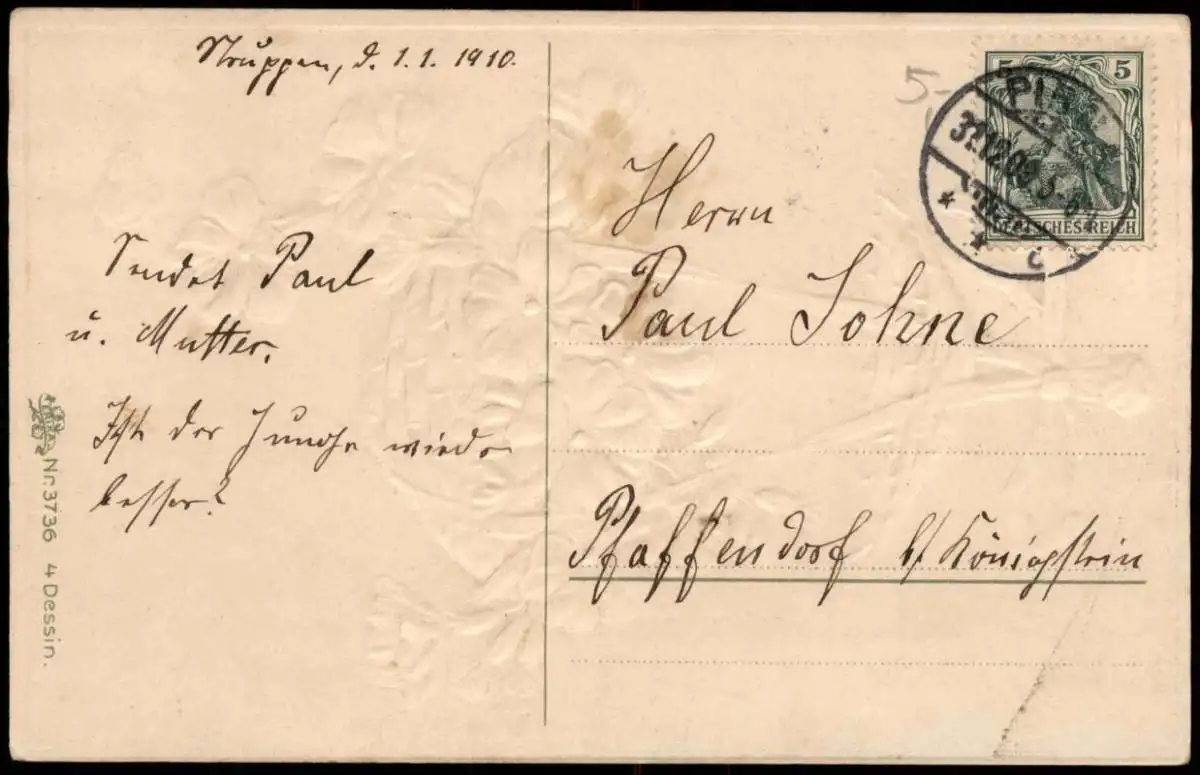 Struppen, d. 1.1. 1910.
Sendet Paul
u. Mutter.
Ist der Junge wieder
besser?
Nr. 3736 4 Dessin.
5-
5 5
DEUTSCHES REICH
PIRNA
31.12.09 5-6N
* * c
Herrn
Paul Sohne
Pfaffendorf b/ Königstein